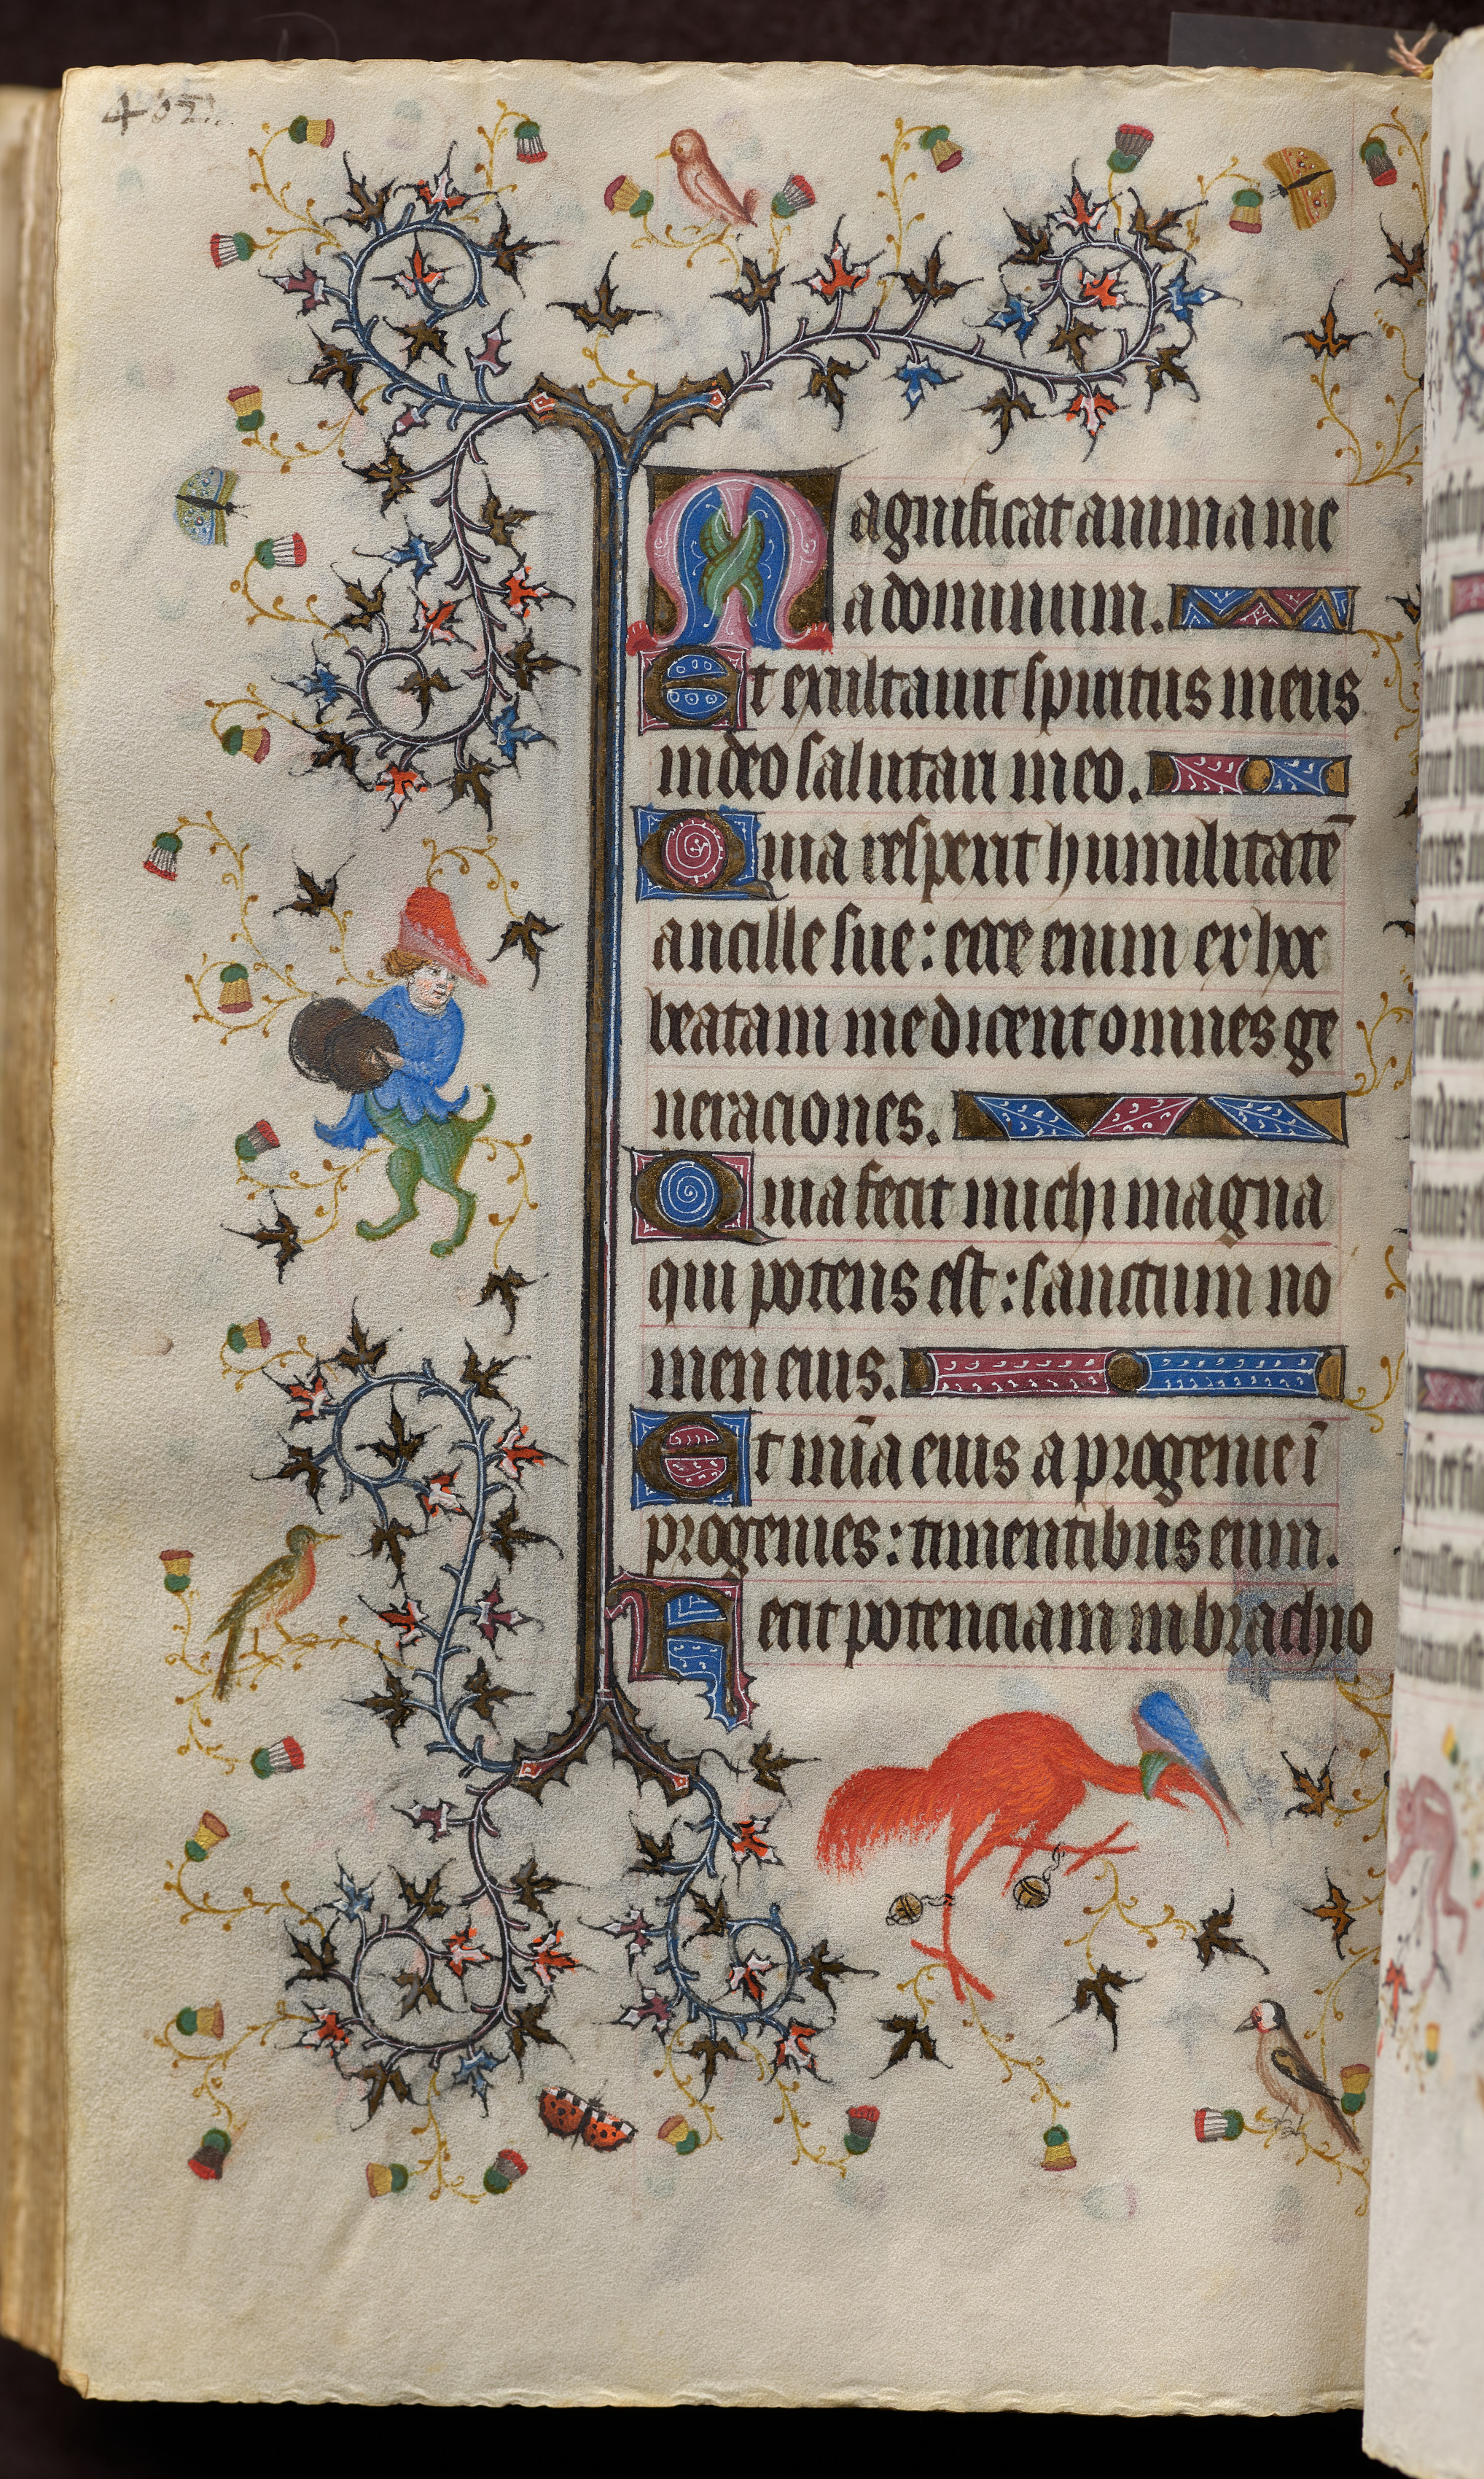 Magnificat anima me
a dominum.
Et exultauit spiritus meus
in deo salutari meo.
Quia respexit humilitatē
ancille sue: ecce enim ex hoc
beatam me dicent omnes ge
neraciones.
Quia fecit michi magna
qui potens est: sanctum no
men eius.
Et mīa eius a progenie ī
progenies: timentibus eum.
Fecit potenciam in brachio